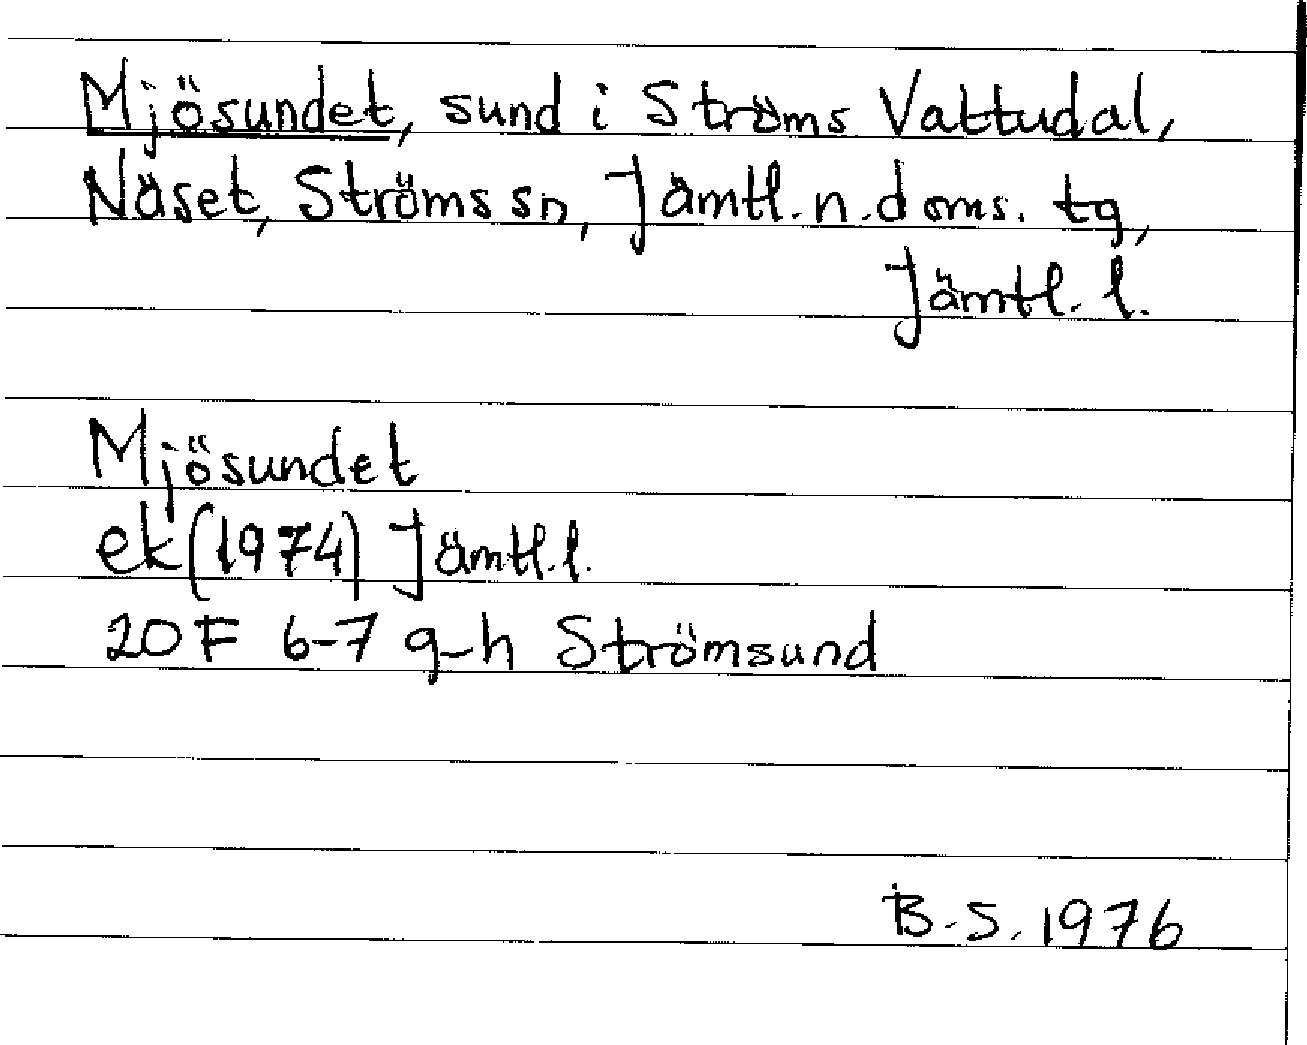 Mjösundet, sund i Ströms Vattudal,
Näset, Ströms sn, Jämtl. n. doms. tg,
Jämtl. l.
Mjösundet
ek (1974) Jämtl. l.
20 F 6-7 g-h Strömsund
B. S. 1976